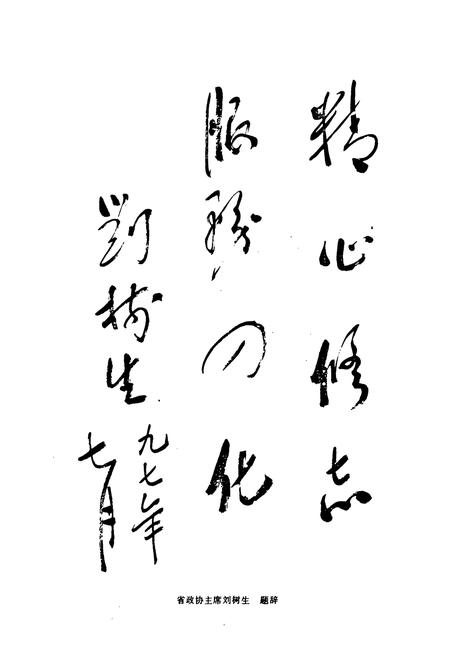 精心修志
服務四化
劉樹生
九七年
七月
省政协主席刘树生 题辞